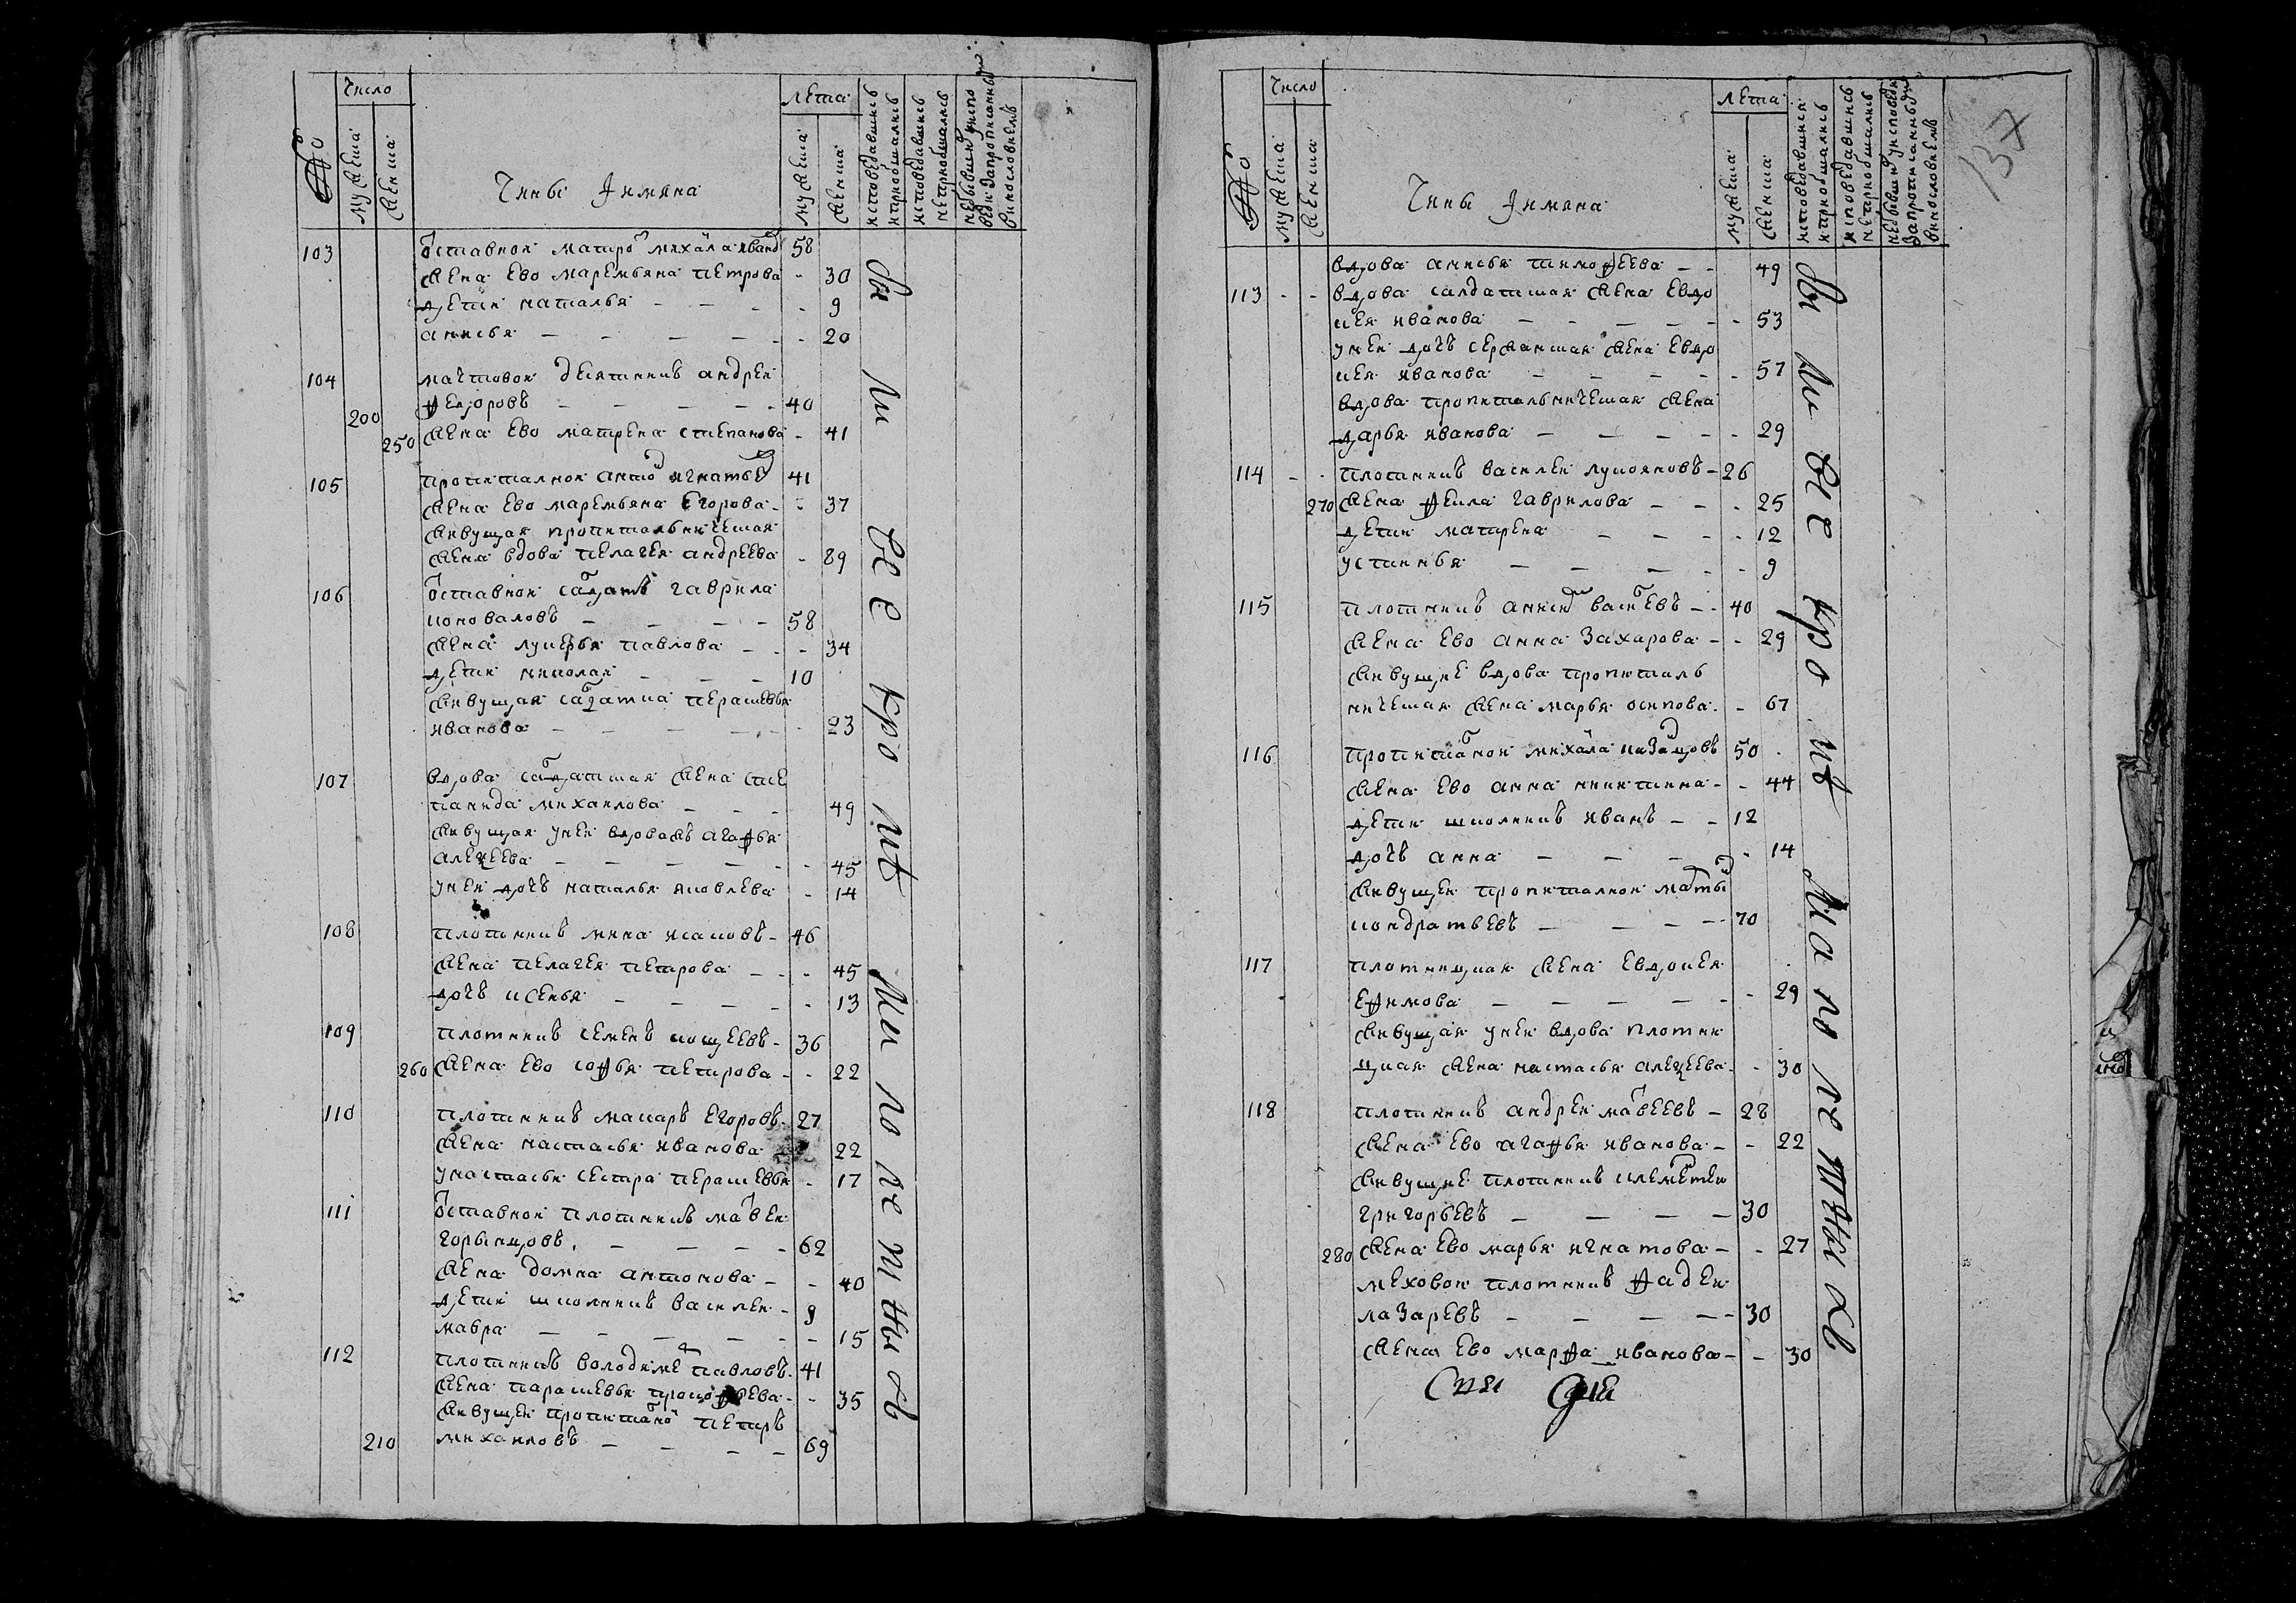 число
лета
№
мужеска
женска
чины и имяна
мужеска
женска
исповедавшись
и приобщались
исповедавшись
не приобщались
103 отставнои матро михаила иванов 58
жена ево маремьяна петрова - 30
дети наталья - - - 9
анисья - - - - - 20
104 мачтовои десятникъ андреи
200 федоровъ - - - - - 40
250 жена ево матрена степанова - 41
105 пропиталнои анто игнатье 41
жена ево маремьяна егорова - - 37
живущая пропитальническая
жена вдова пелагея андреева - 89
106 отставнои салдатъ гаврила
коноваловъ - - - - 58
жена лукерья павлова - - - 34
дети николаи - - - 10
живущая салдатка перасковья
иванова - - - - - 23
107 вдова салдатская жена сте
панида михаилова - - - 49
живущая у неи вдова агафья
алексеева - - - - - - 45
у неи дочь наталья яковлева - 14
108 плотникъ мина исаковъ - 46
жена пелагея петрова - - - 45
дочь исенья - - - - - 13
109 плотникъ семенъ кощеевъ - 36
260 жена ево софья петрова - - 22
110 плотникъ макаръ егоровъ - 27
жена настасья иванова 22
у настасьи сестра перасковья - 17
111 отставнои плотникъ матвеи
горбунцовъ - - - - 62
жена домна антонова - - 40
дети школникъ василеи - 9
мавра - - - - - - 15
112 плотникъ володиме павловъ - 41
жена парасковья прокофьева - - 35
живущеи пропитано петръ
210 михаиловъ - - - - 69
вси ли все кро ме мало лет ныхъ
137
число
лета
№
мужеска
женска
чины и имяна
мужеска
женска
исповедавшися
и приобщались
исповедавшись
не приобщались
вдова анисья тимофеева - - 49
113 - - вдова салдатская жена евдо
кея иванова - - - - - - 53
у неи дочь сержанская жена евдо
кея иванова - - - - - 57
вдова пропитальническая жена
дарья иванова - - - - - 29
114 - - плотникъ василеи лукояновъ - 26
270 жена фекла гаврилова - - - 25
дети матрена - - - - 12
устинья - - - - - 9
115 плотникъ аники васиевъ - - 40
жена ево анна захарова - - 29
живущие вдова пропиталь
ническая жена марья осипова - - 67
116 пропитанои михаила казанцовъ 50
жена ево анна никитина - - 44
дети школникъ иванъ - - 12
дочь анна - - - - 14
живущеи пропиталнои матвы
кондратьевъ - - - - 70
117 плотницкая жена евдокея
ефимова - - - - - - 29
живущая у неи вдова плотни
цкая жена настасья алексеева - - 30
118 плотникъ андреи матвеевъ - 28
жена ево агафья иванова - - 22
живущие плотникъ клементеи
григорьевъ - - - - 30
280 жена ево марья игнатова - - 27
меховои плотникъ фадеи
лазаревъ - - - - - 30
жена ево марфа иванова - - 30
вси ли все кро ме мало лет ныхъ